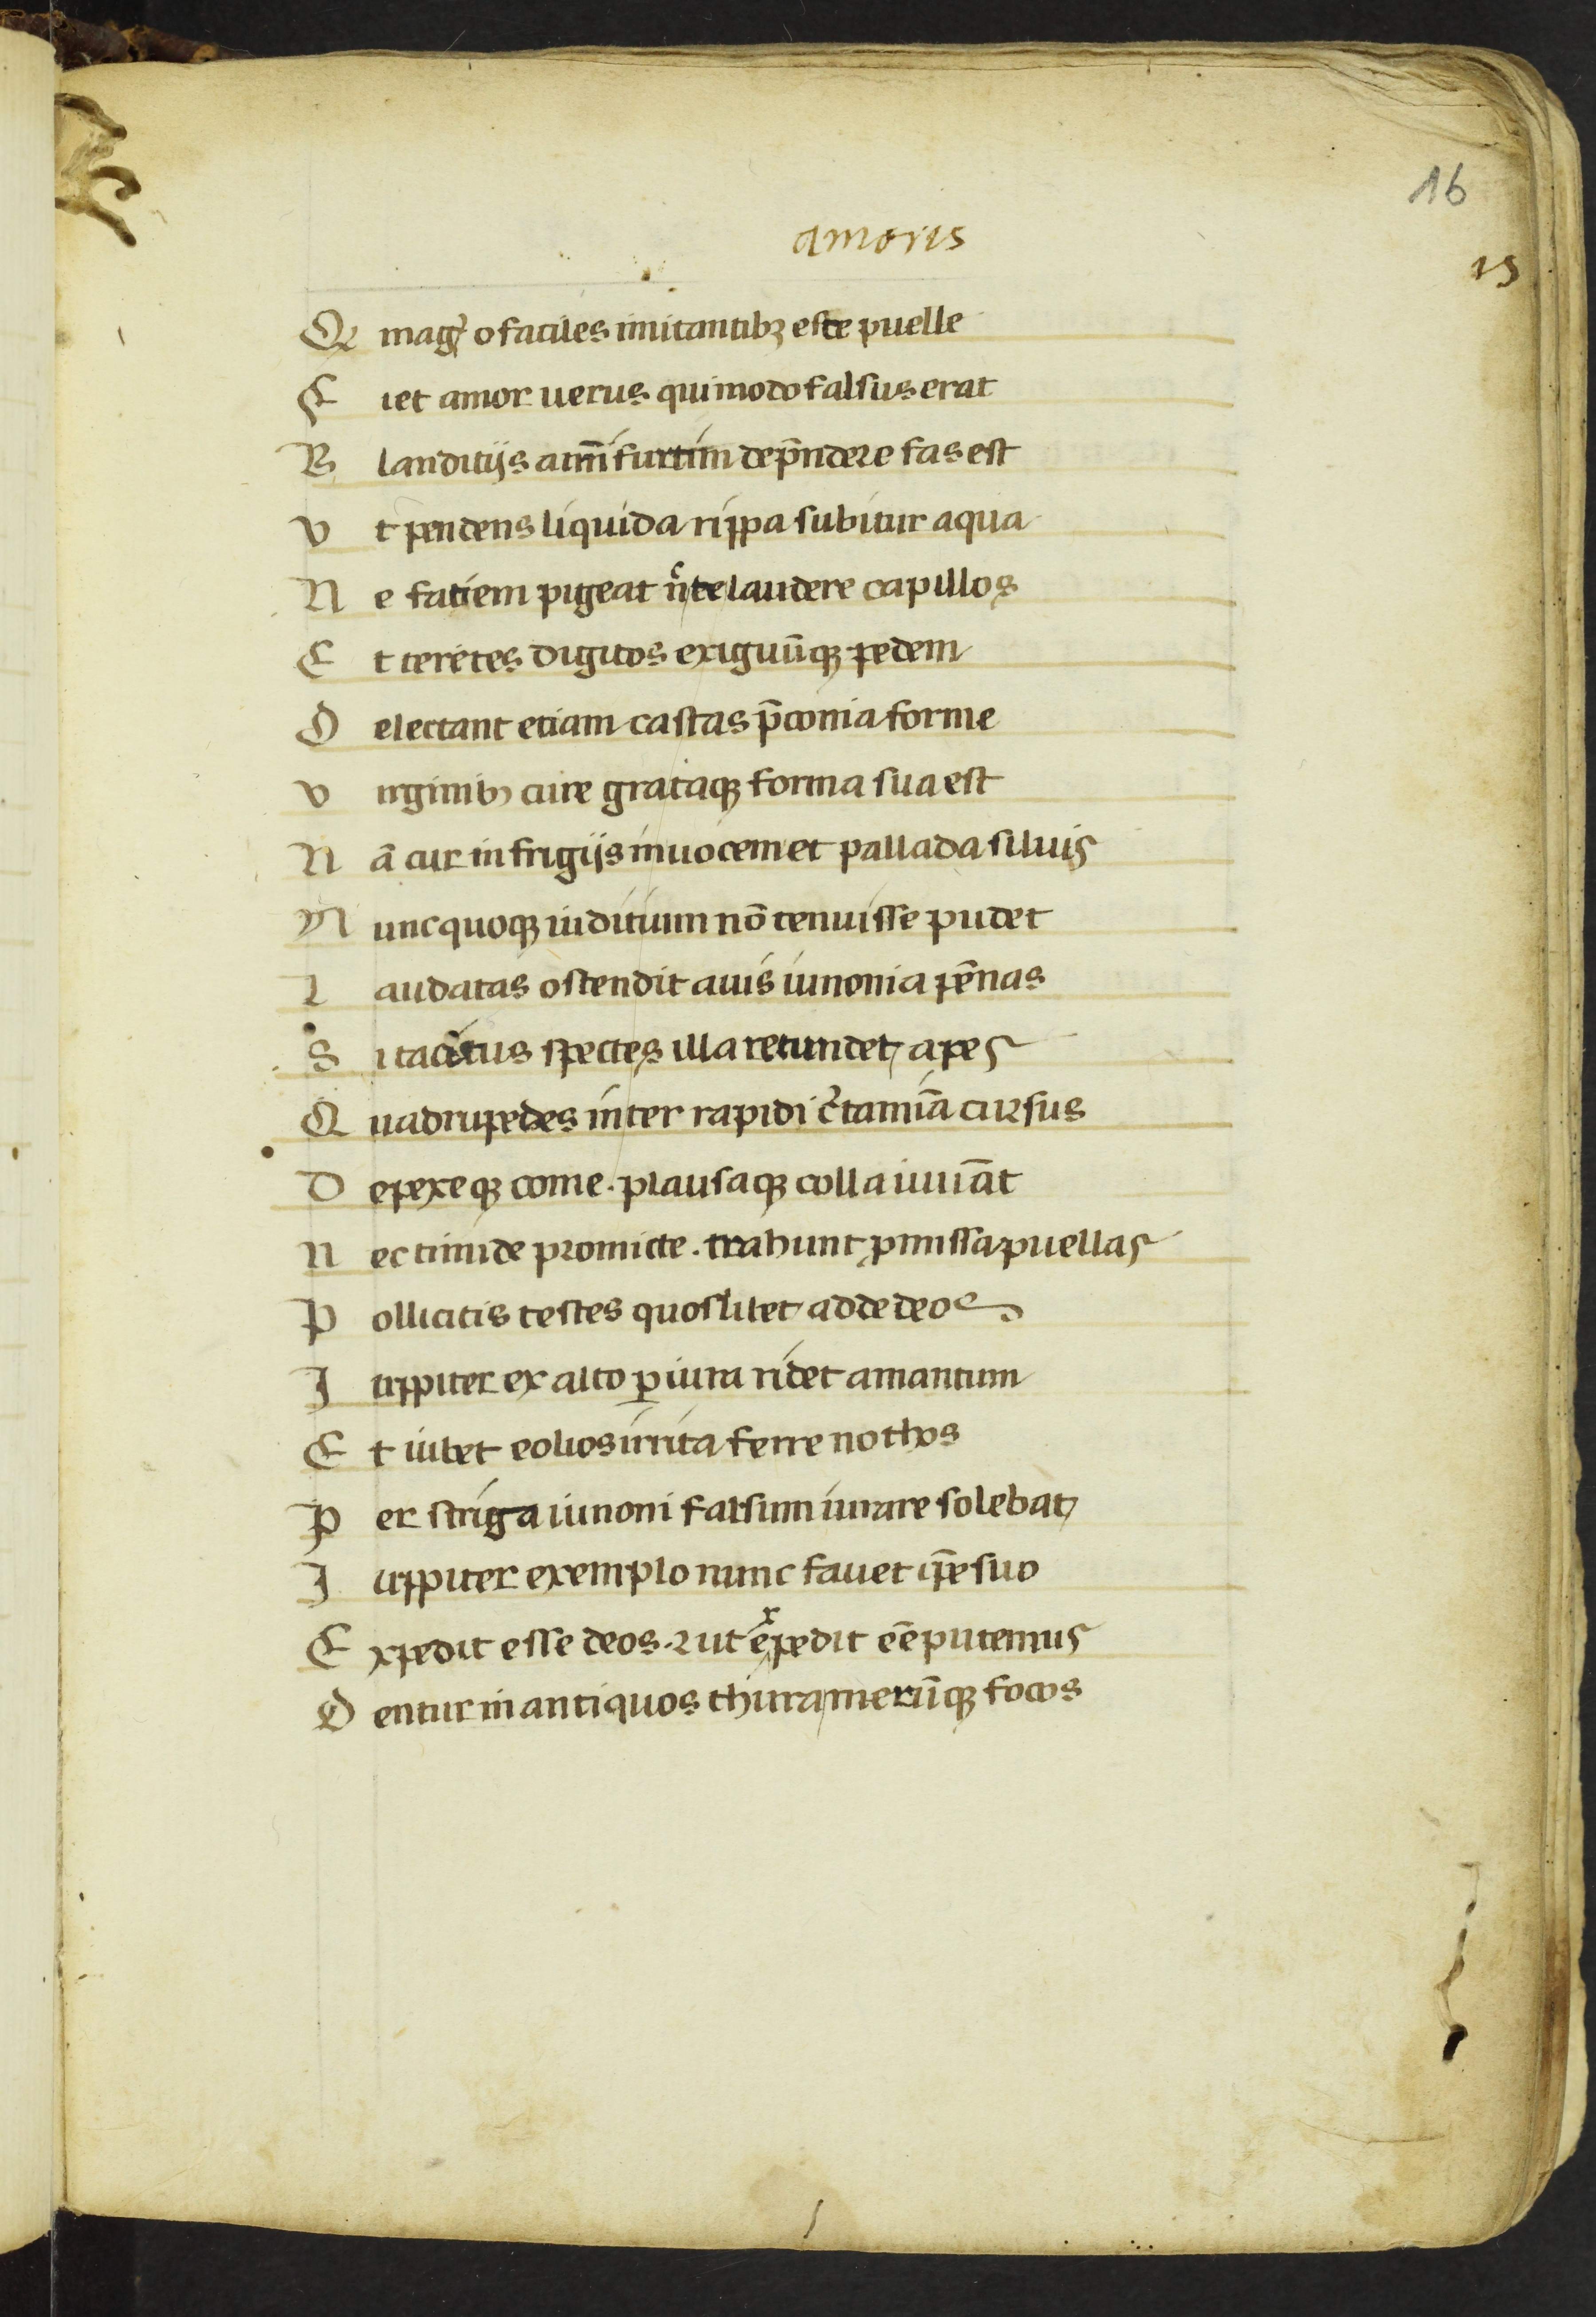 16
amoris
15
Q mag̃ o faciles imitantibꝫ este puelle
F iet amor uerus qui modo falsus erat
B landitijs aĩm furtim dep̃ndere fas est
V t pendens liquida rippa subitur aqua
N e faciem pigeat ñ te laudere capillos
E t teretes digitos exiguũqꝫ pedem
D electant etiam castas p̃conia forme
V irginibꝫ cure grataqꝫ forma sua est
N ã cur in frigijs inuocem et pallada siluis
N unc quoqꝫ iuditium nõ tenuisse pudet
L audatas ostendit auis iunonia pẽnas
S i tacitus spectes illa retundet apes
Q uadrupedes inter rapidi c̃tamĩa cursus
D epexeqꝫ come . plausaqꝫ colla iuuãt
N ec timide promicte . trahunt ꝓmissa puellas
P ollicitis testes quoslibet adde deos
I uppiter ex alto ꝑiura ridet amantum
E t iubet eolios irrita ferre nothos
P er striga iunoni falsum iurare solebat
I uppiter exemplo nunc fauet ip̃e suo
E xpedit esse deos . ⁊ ut expedit eẽ putemus
D entur in antiquos thura merũqꝫ focos